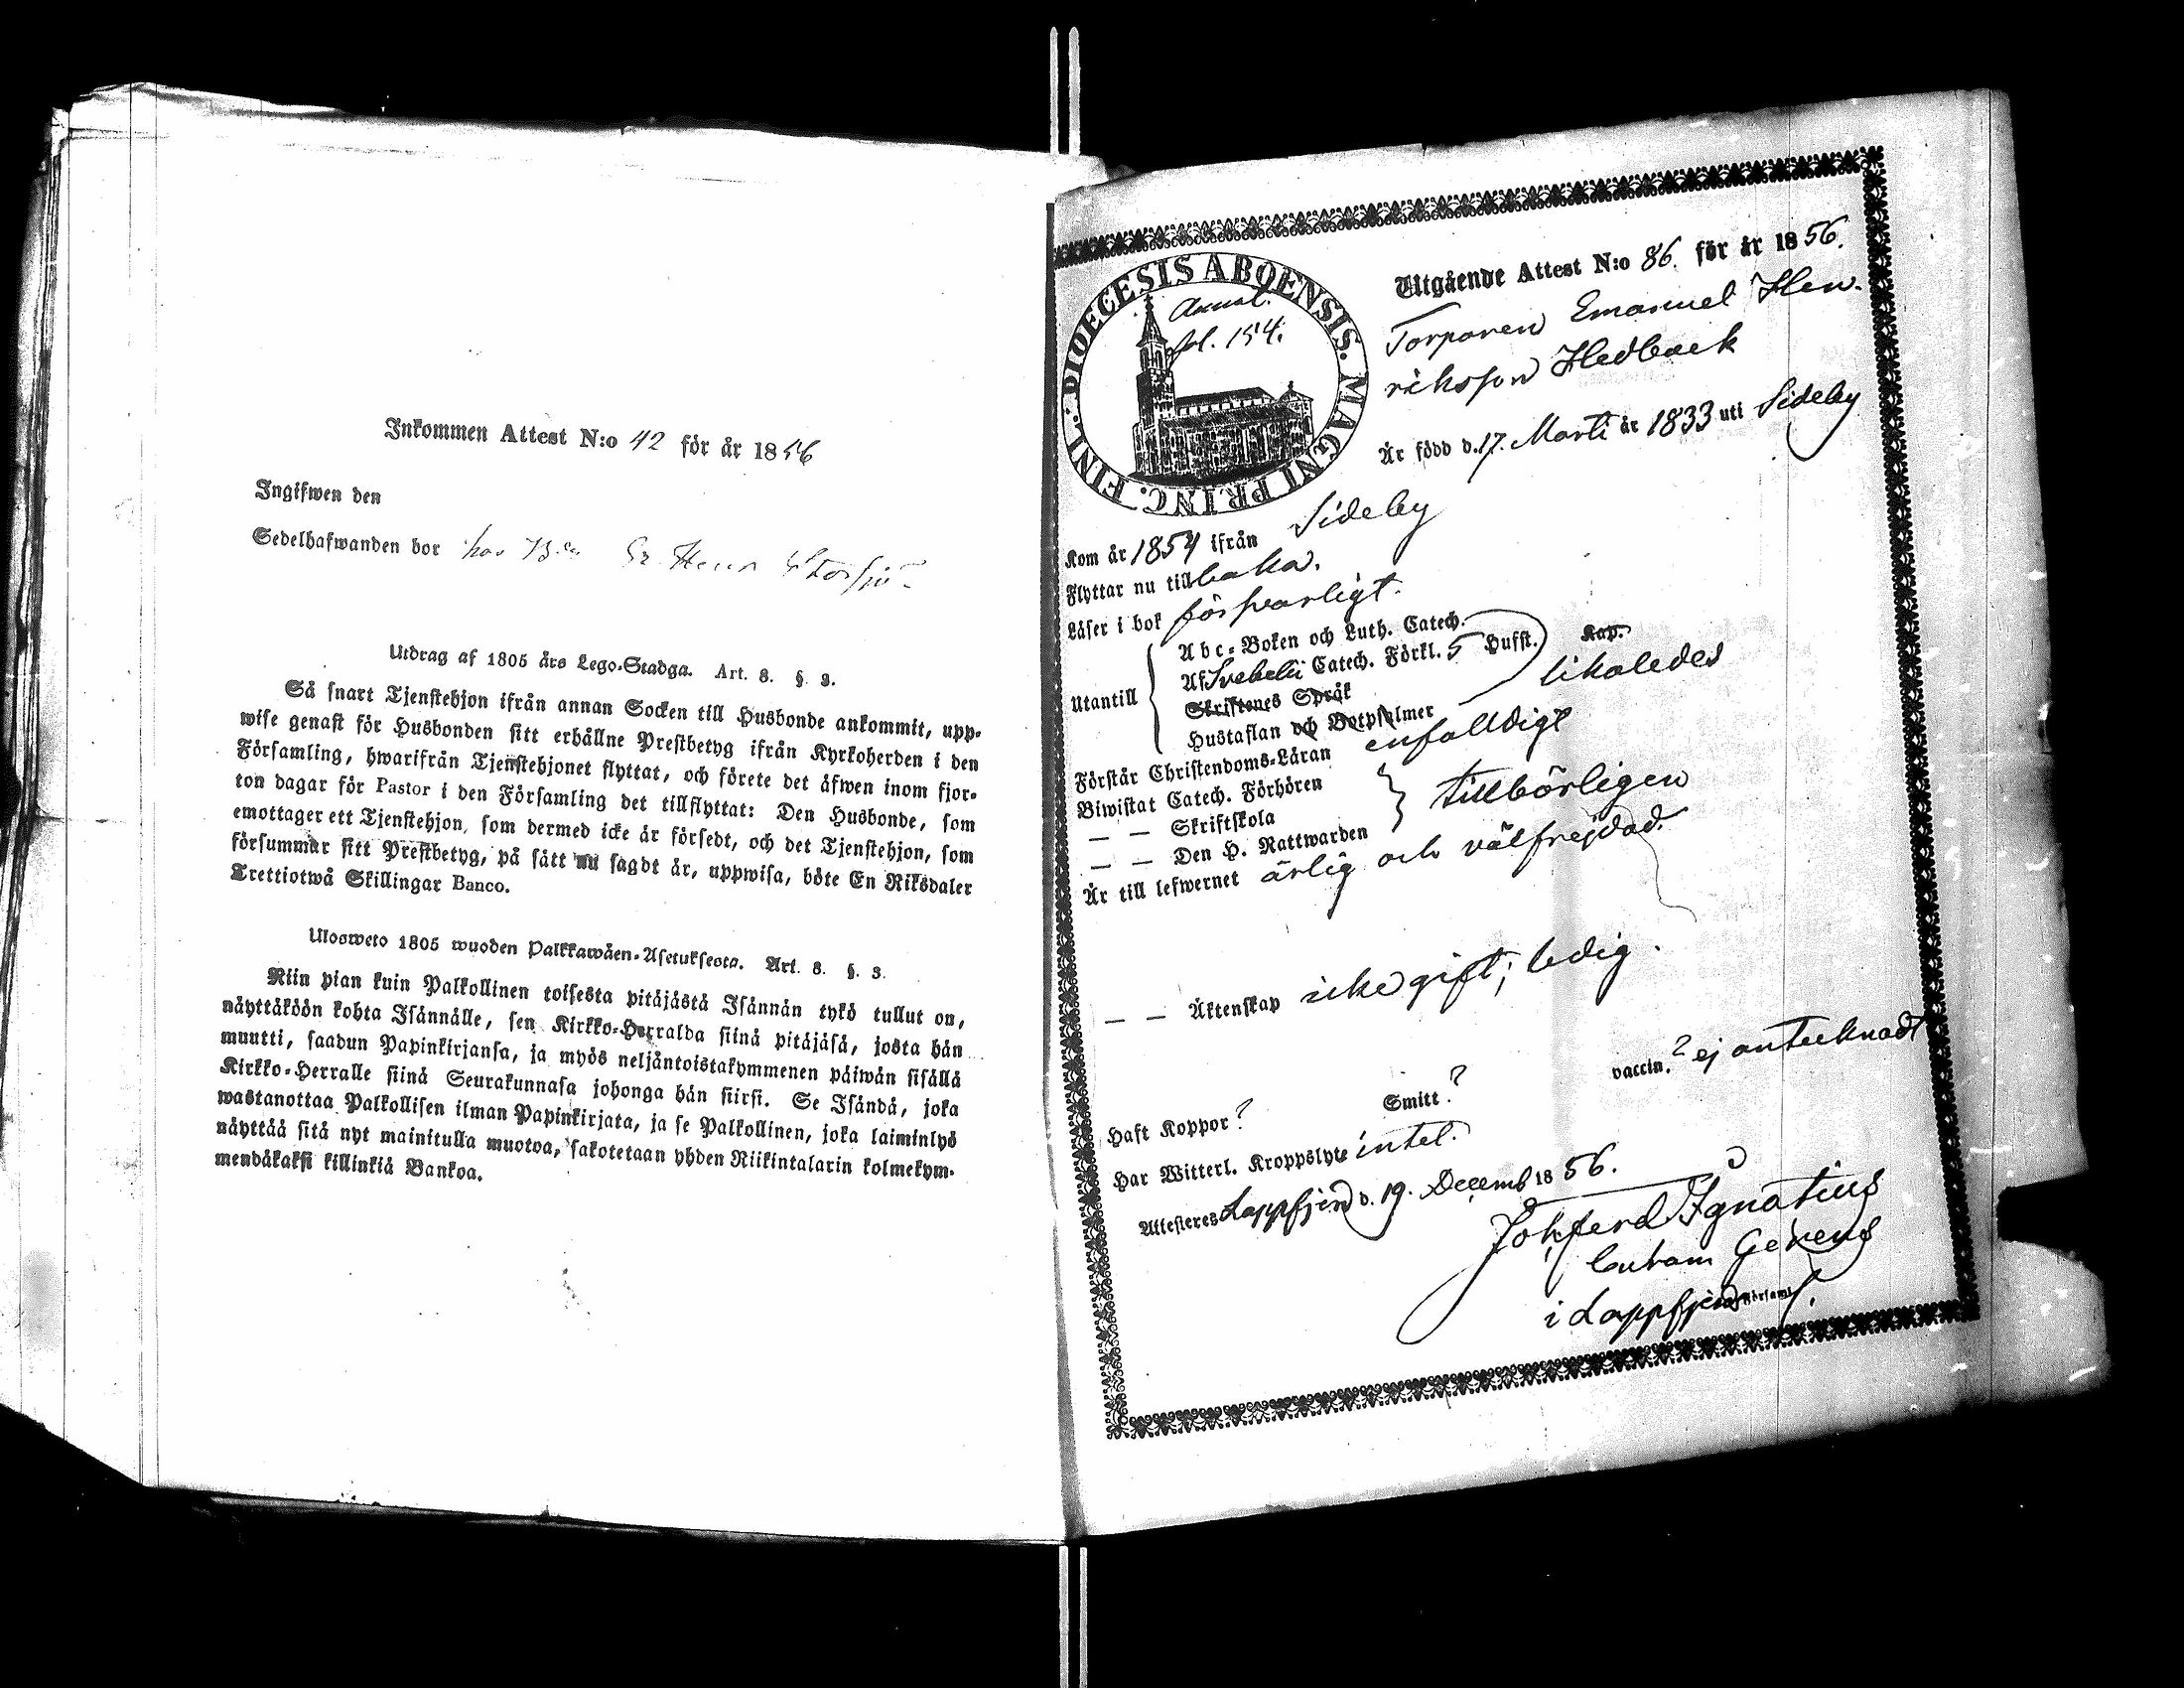 Inkommen Attest N:o 42 för år 1856
Ingifwen den
Sedelhafwanden bor hos
Utdrag af 1805 års Lego-Stadga. Art. 8. §. 3.
Så snart Tjenstehjon ifrån annan Socken till Husbonde ankommit, upp-
wise genast för Husbonden sitt erhållne Prestbetyg ifrån Kyrkoherden i den
Församling, hwarifrån Tjenstehjonet flyttat, och förete det äfwen inom fjor-
ton dagar för Pastor i den Församling det tillflyttat: Den Husbonde, som
emottager ett Tjenstehjon, som dermed icke är försedt, och det Tjenstehjon, som
försummar sitt Prestbetyg, på sätt nu sagdt är, uppwisa, böte En Riksdaler
Trettiotwå Skillingar Banco.
Ulosweto 1805 wuoden Palkkawäen-Asetuksesta. Art. 8. §. 3.
Niin pian kuin Palkollinen toisesta pitäjästä Isännän tykö tullut on,
näyttäköön kohta Isännälle, sen Kirkko-Herralda siinä pitäjäsä, josta hän
muutti, saadun Papinkirjansa, ja myös neljäntoistakymmenen päiwän sisällä
Kirkko-Herralle siinä Seurakunnasa johonga hän siirsi. Se Isändä, joka
wastanottaa Palkollisen ilman Papinkirjata, ja se Palkollinen, joka laiminlyö
näyttää sitä nyt mainitulla muotoa, sakotetaan yhden Riikintalarin kolmekym-
mendäkaksi killinkiä Bankoa.
DIOECESIS ABOENSIS. MAGNI PRINC. FINL.
fol. 154.
Utgående Attest N:o 86. för år 1856.
Torparen Emanuel Hen-
riksson Hedback
Är född d. 17. Marti år 1833 uti Sideby
Kom år 1854 ifrån Sideby
Flyttar nu till baka.
Läser i bok försvarligt.
Utantill
Abc-Boken och Luth. Catech.
Af Svebelii Catech. Förkl. 5 Hufst. Kap.
Skriftenes Språk likaledes
Hustaflan och Botpsalmer
Förstår Christendoms-Läran enfalldigt
Biwistat Catech. Förhören
— — Skriftskola tillbörligen
— — Den H. Nattwarden
Är till lefwernet ärlig och välfrejdad.
— — Äktenskap icke gift; ledig.
Haft Koppor? Smitt? vaccin.? ej antecknadt
Har Witterl. Kroppslyte intet.
Attesteras Lappfjerd d. 19. Decemb 1856.
Joh. ferd Ignatius
Curam Gerens
i Lappfjerds Församl.